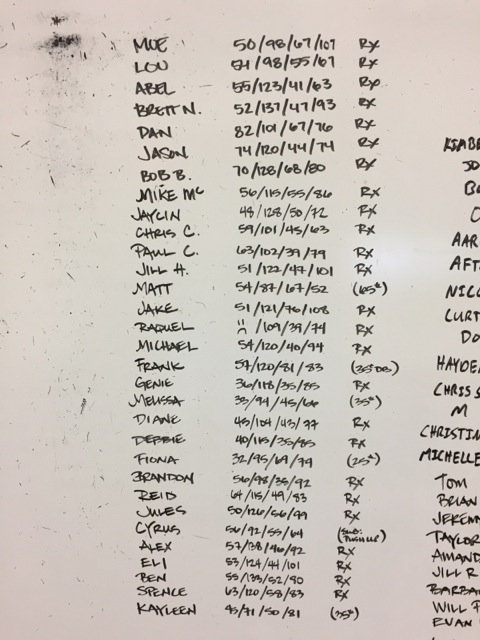 MOE 50/98/67/107 RX
LOU 51/98/55/67 RX
ABEL 55/123/41/63 RX
BRETT N. 52/137/47/93 RX
DAN 82/101/67/76 RX
JASON 74/120/44/74 RX
BOB B. 70/128/68/80 RX
MIKE MC 56/115/55/86 RX
JAYCIN 48/128/50/72 RX
CHRIS C. 59/101/45/63 RX
PAUL C. 63/102/39/79 RX
JILL H. 51/122/47/101 RX
MATT 54/87/67/52 (65#)
JAKE 51/121/76/108 RX
RAQUEL /109/39/74 RX
MICHAEL 54/120/40/94 RX
FRANK 57/120/81/83 (35#DB)
GENIE 36/118/35/85 RX
MELISSA 33/94/45/66 (35#)
DIANE 45/104/43/77 RX
DEBBIE 40/115/35/85 RX
FIONA 32/95/69/79 (25#)
BRANDON 56/98/35/92 RX
REID 64/115/49/83 RX
JULES 50/126/56/79 RX
CYRUS 56/92/55/64
ALEX 57/138/46/92 RX
ELI 53/124/44/101 RX
BEN 55/133/52/80 RX
SPENCE 63/120/58/83 RX
KAYLEEN 45/71/50/81 (35#)
AAR
AFT
NICO
CURT
DO
HAYDE
CHRIS S
M
CHRISTIN
MICHELLE
TOM
BRIAN
JEREM
TAYLOR
AMAND
JILL R
BARBA
WILL P
EVAN